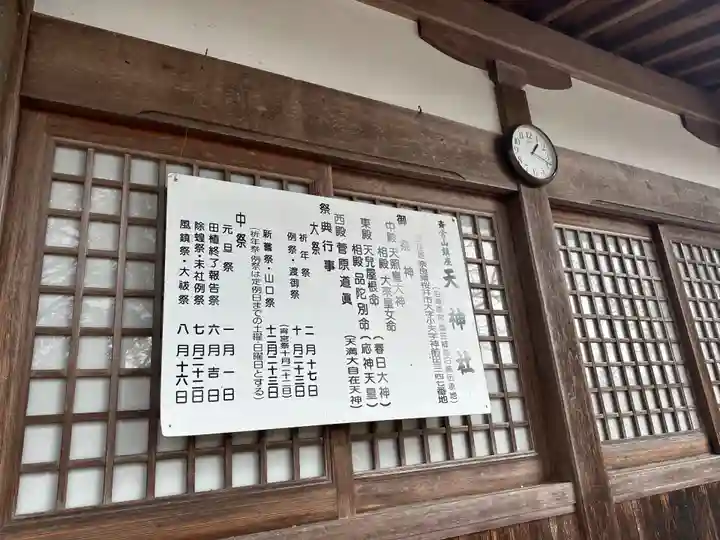 天神社
御祭神
中殿 天照皇大神
相殿 大来皇女命
東殿 天児屋根命 (春日大神)
相殿 品陀別命 (応神天皇)
西殿 菅原道真 (天満大自在天神)
祭典行事
大祭
祈年祭 二月十七日
例祭・渡御祭 十月二十三日
(宵宮祭十月二十二日)
新嘗祭・山口祭 十二月二十三日
(祈年祭 例祭は定例日までの土曜、日曜日とする)
中祭
元旦祭 一月一日
田植終了報告祭 六月吉日
除蝗祭・末社例祭 七月二十二日
風鎮祭・大祓祭 八月十六日